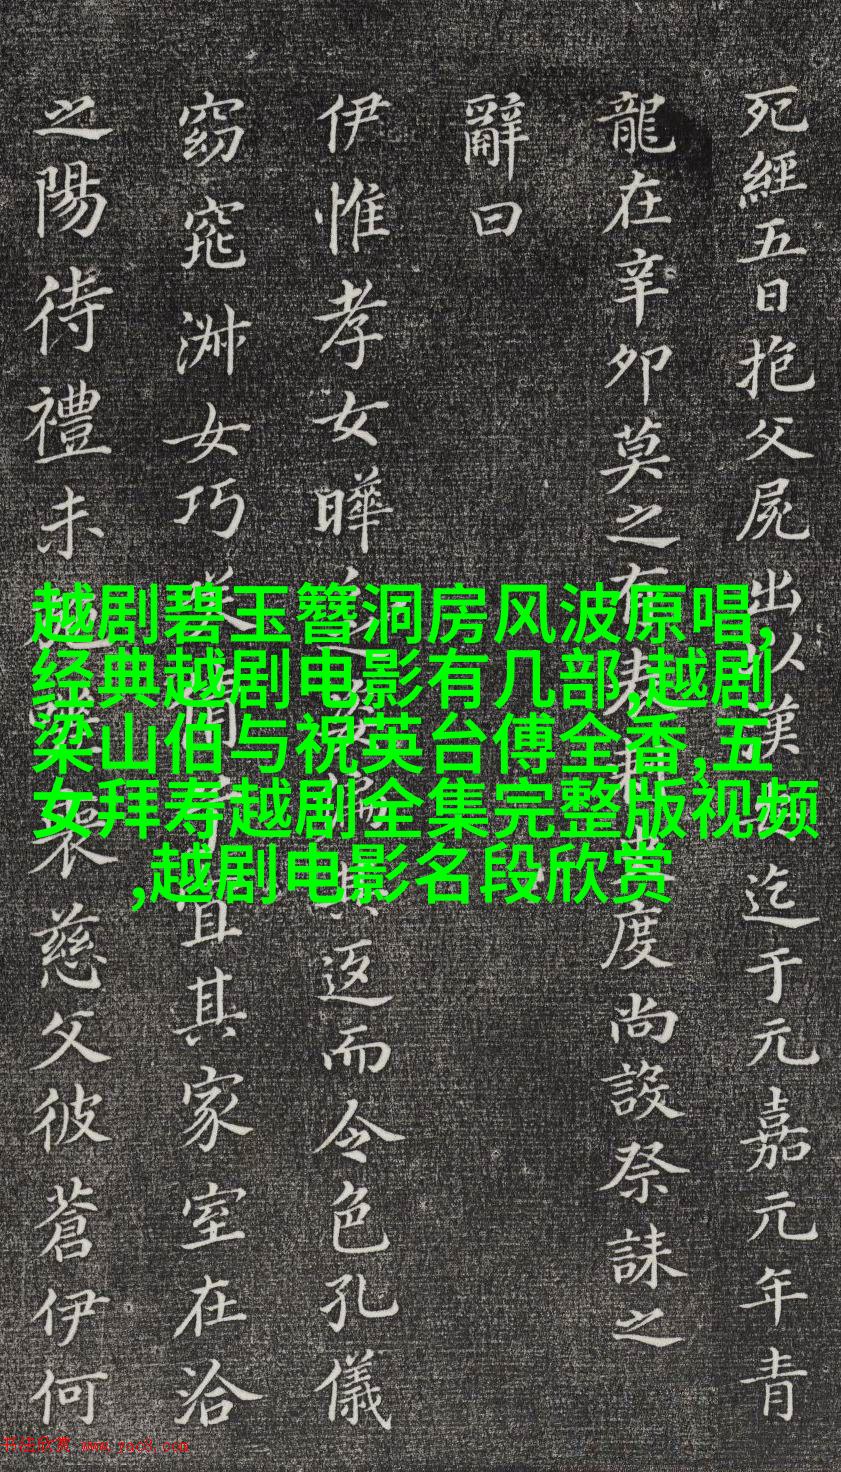 死經五日抱父屍出以漢迄于元嘉元年青
龍在辛卯莫之有表度尚設祭誄之
辭曰
伊惟孝女曄之偏其返而令色孔儀
窈窕淋女巧笑倩兮宜其家室在洽
之陽待禮未施嗟喪慈父彼蒼伊何
越剧碧玉簪洞房风波原唱,
经典越剧电影有几部,越剧
梁山伯与祝英台傅全香,五
女拜寿越剧全集完整版视频
,越剧电影名段欣赏